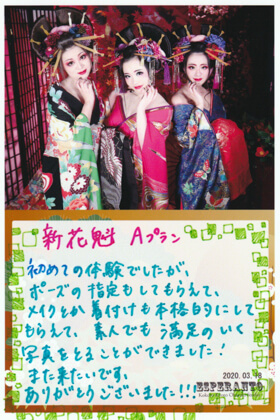 新花魁 Aプラン
初めての体験でしたが、
ポーズの指定もしてもらえて、
メイクとか着付けも本格的にして
もらえて、素人でも満足のいく
写真をとることができました!
また来たいです。
ありがとうございました!!!
2020.03.18
ESPERANTO